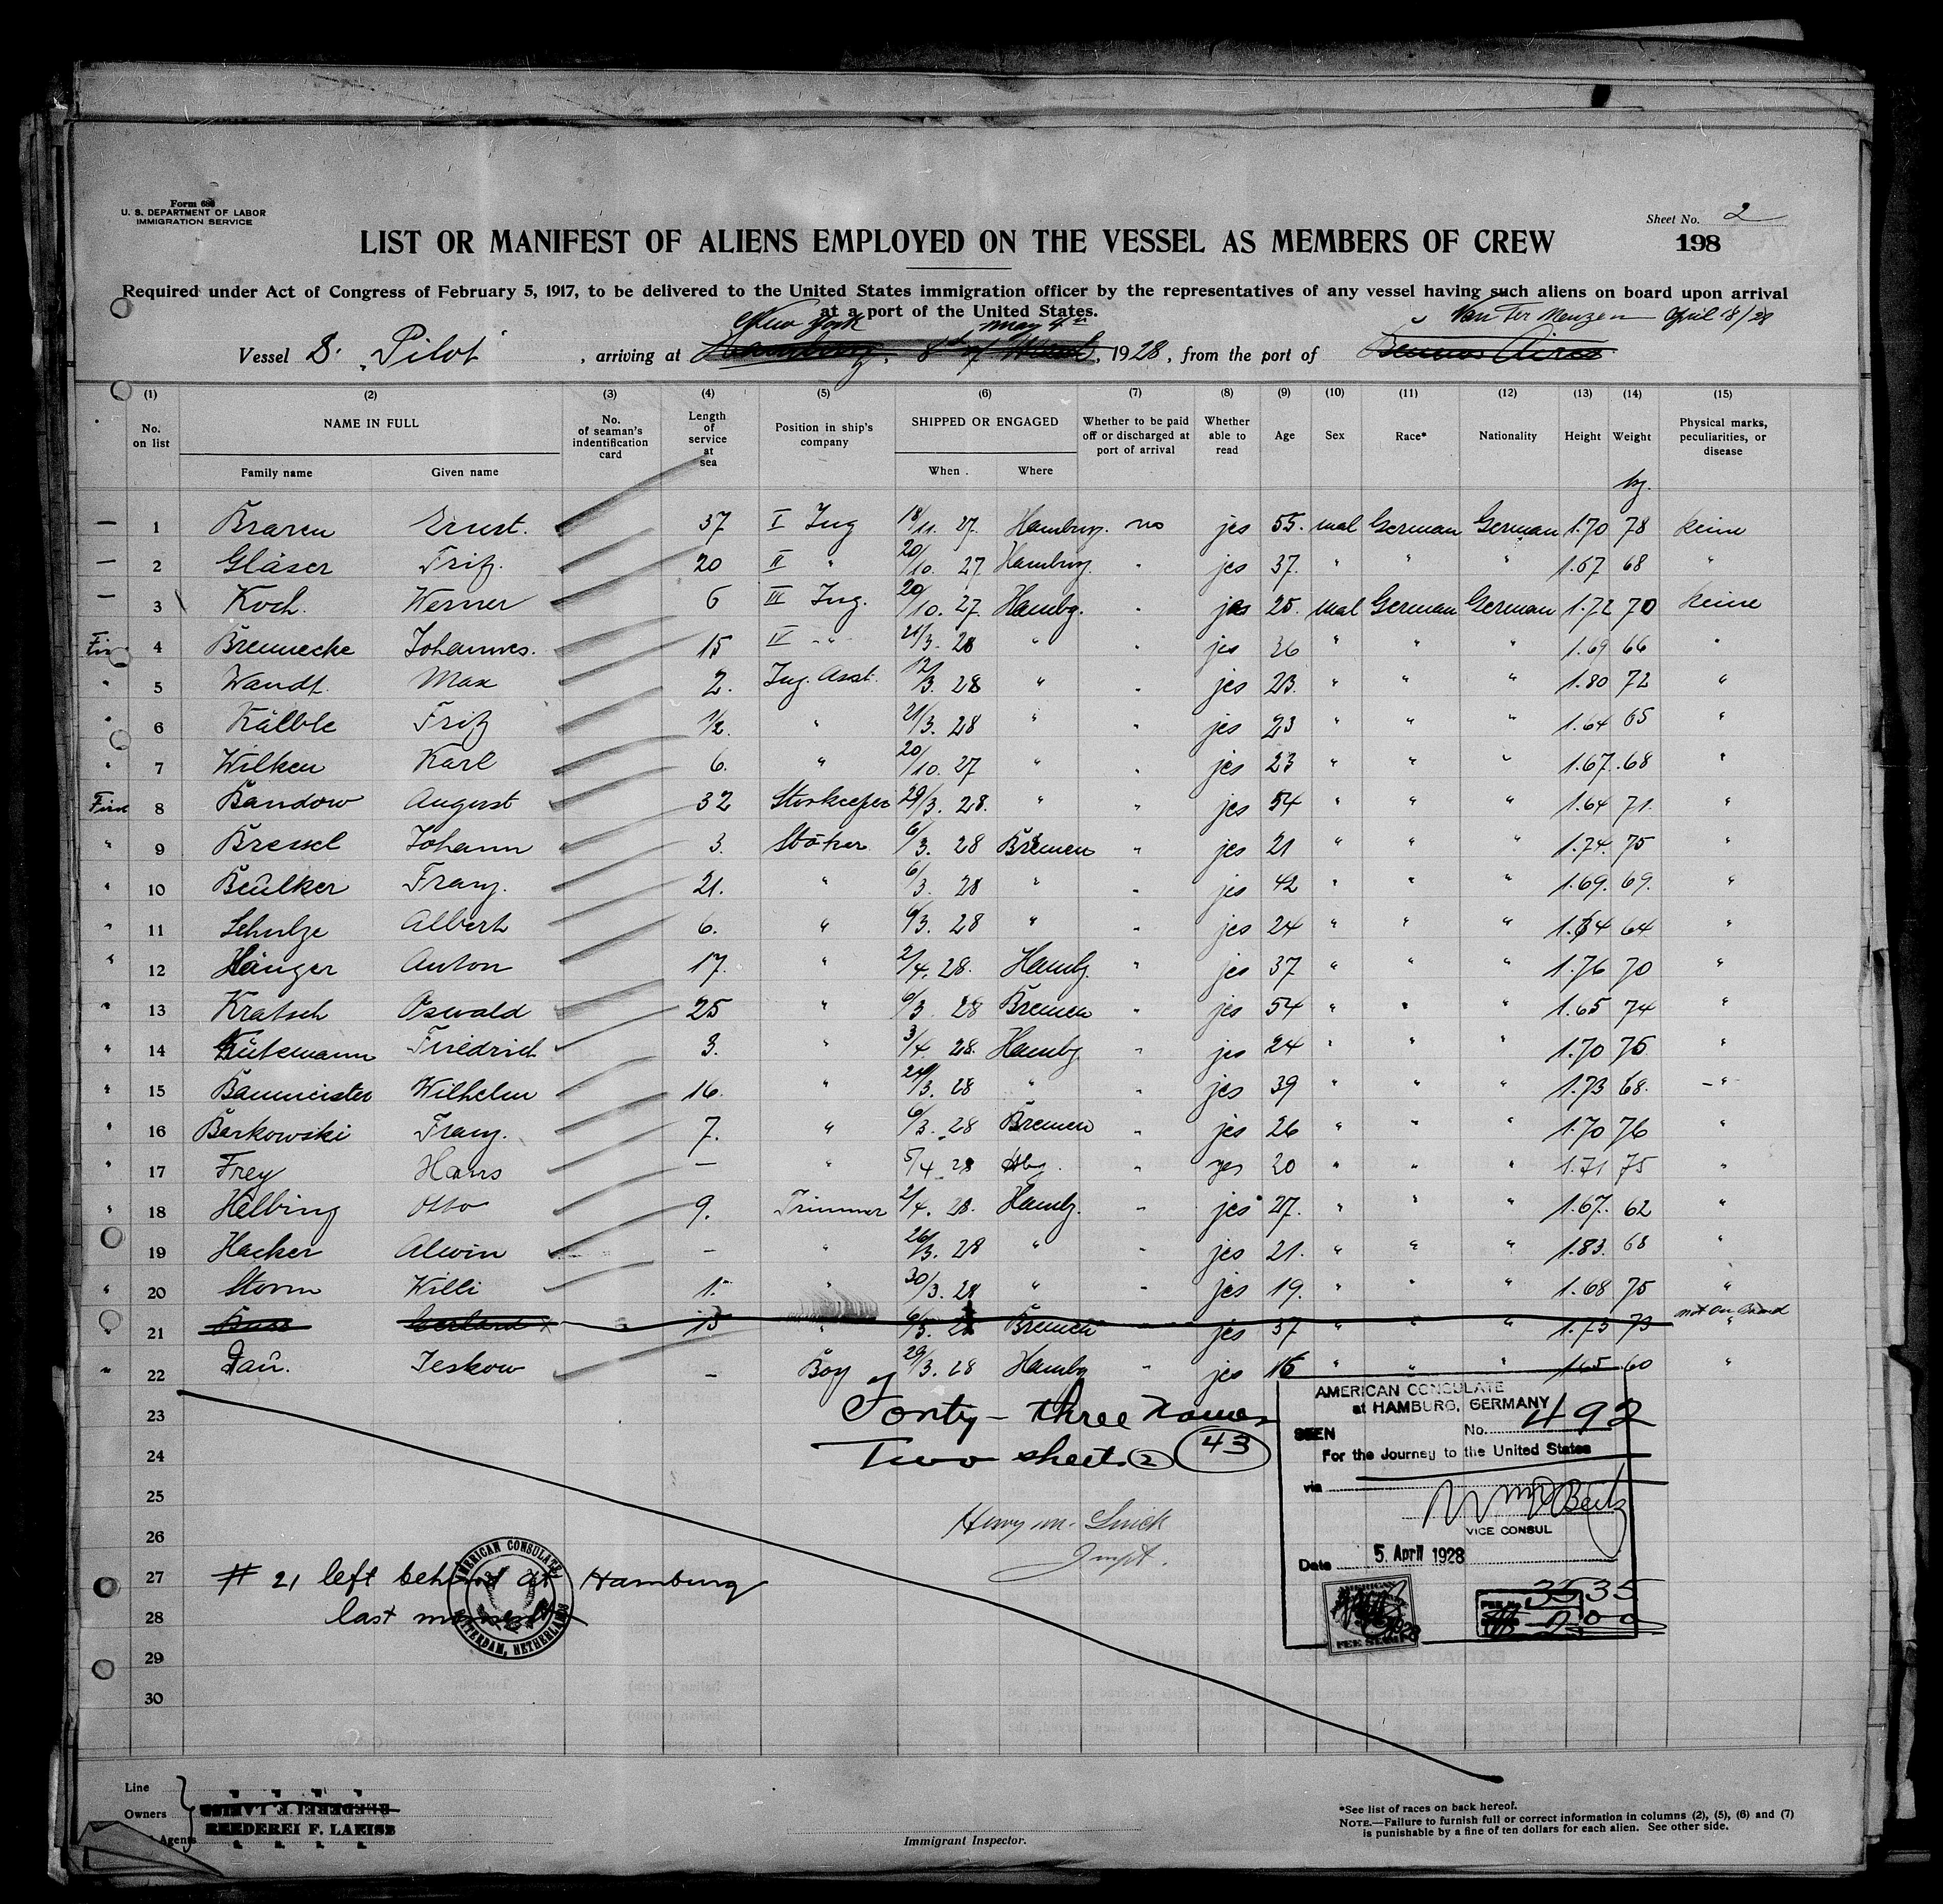 Form 680
U. S. DEPARTMENT OF LABOR
IMMIGRATION SERVICE
Sheet No. 2
198
LIST OR MANIFEST OF ALIENS EMPLOYED ON THE VESSEL AS MEMBERS OF CREW
Required under Act of Congress of February 5, 1917, to be delivered to the United States immigration officer by the representatives of any vessel having such aliens on board upon arrival
at a port of the United States.
New York May 4th Van Ter Neuzen April 18/28
Vessel D. "Pilot" , arriving at Hamburg, 1928, from the port of Buenos Aires
(1) (2) (3) (4) (5) (6) (7) (8) (9) (10) (11) (12) (13) (14) (15)
No. on list NAME IN FULL Family name Given name No. of seaman's indentification card Length of service at sea Position in ship's company SHIPPED OR ENGAGED When. Where Whether to be paid off or discharged at port of arrival Whether able to read Age Sex Race* Nationality Height Weight Physical marks, peculiarities, or disease
kg.
— 1 Braren Ernst. 37 I Ing 18/11. 27. Hamburg. no jes 55. mal German German 1.70 78 keine
— 2 Gläser Fritz. 20 II " 20/10. 27 Hamburg. " jes 37. " " " 1.67 68 "
— 3 Koch. Werner 6 III Ing. 20/10. 27. Hambg. " jes 25. mal German German 1.72 70 keine
4 Brennecke Johannes. 15 IV " 21/3. 28 " " jes 36 " " " 1.69 66 "
" 5 Wandt. Max 2. Ing. Asst. 12/3. 28 " " jes 23. " " " 1.80 72 "
" 6 Kälble Fritz 1/2. " 21/3. 28 " " jes 23 " " " 1.64 65 "
" 7 Wilken Karl 6. " 20/10. 27 " " jes 23 " " " 1.67. 68 "
8 Bandow August 32 Storkeeper 29/3. 28. " " jes 54 " " " 1.64 71. "
" 9 Bressel Johann 3. Stoker 6/3. 28 Bremen " jes 21 " " " 1.74. 75 "
" 10 Beulker Franz. 21. " 6/3. 28 " " jes 42 " " " 1.69. 69. "
" 11 Schulze Albert 6. " 6/3. 28 " " jes 24 " " " 1.64 64. "
" 12 Hänger Anton 17. " 2/4. 28. Hambg. " jes 37 " " " 1.76 70 "
" 13 Kratsch Oswald 25 " 6/3. 28 Bremen " jes 54 " " " 1.65 74 "
" 14 Kütemann Friedrich 3. " 3/4. 28. Hambg " jes 24 " " " 1.70 75 "
" 15 Baumeister Wilhelm 16. " 28 " " jes 39 " " " 1.73 68. "
" 16 Barkowski Franz. 7. " 6/3. 28 Bremen " jes 26 " " " 1.70 76 "
" 17 Frey Hans — " 5/4 28 Hbg. " yes 20 " " " 1.71 75 "
" 18 Helbing Otto 9. Trimmer 2/4. 28. Hambg. " jes 27. " " " 1.67. 62 "
" 19 Hacker Alwin — " 26/3. 28 " " jes 21. " " " 1.83. 68 "
" 20 Storm Willi 1. " 30/3. 28 " " jes 19. " " " 1.68 75 "
not on board
" 21 Buss Gerhard 15 " 6/3. 28 Bremen " jes 37 " " " 1.75 73 "
" 22 Dau. Jeskow — Boy 29/3. 28 Hambg " jes 16 " " " 1.65 60 "
23
24
25
26
27
28
29
30
Forty-three Names
Two sheets 2 43
Henry M.
Inspt.
# 21 left behind at Hamburg
last moment
AMERICAN CONSULATE ROTTERDAM, NETHERLANDS
AMERICAN CONSULATE
at HAMBURG, GERMANY
SEEN No. 492
For the Journey to the United States
via
VICE CONSUL
Date 5. April 1928
AMERICAN
FEE STAMP
FEE No. 3535
Line
Owners
Agents
REEDEREI F. LAEISZ
REEDEREI F. LAEISZ
Immigrant Inspector.
*See list of races on back hereof.
NOTE.—Failure to furnish full or correct information in columns (2), (5), (6) and (7)
is punishable by a fine of ten dollars for each alien. See other side.